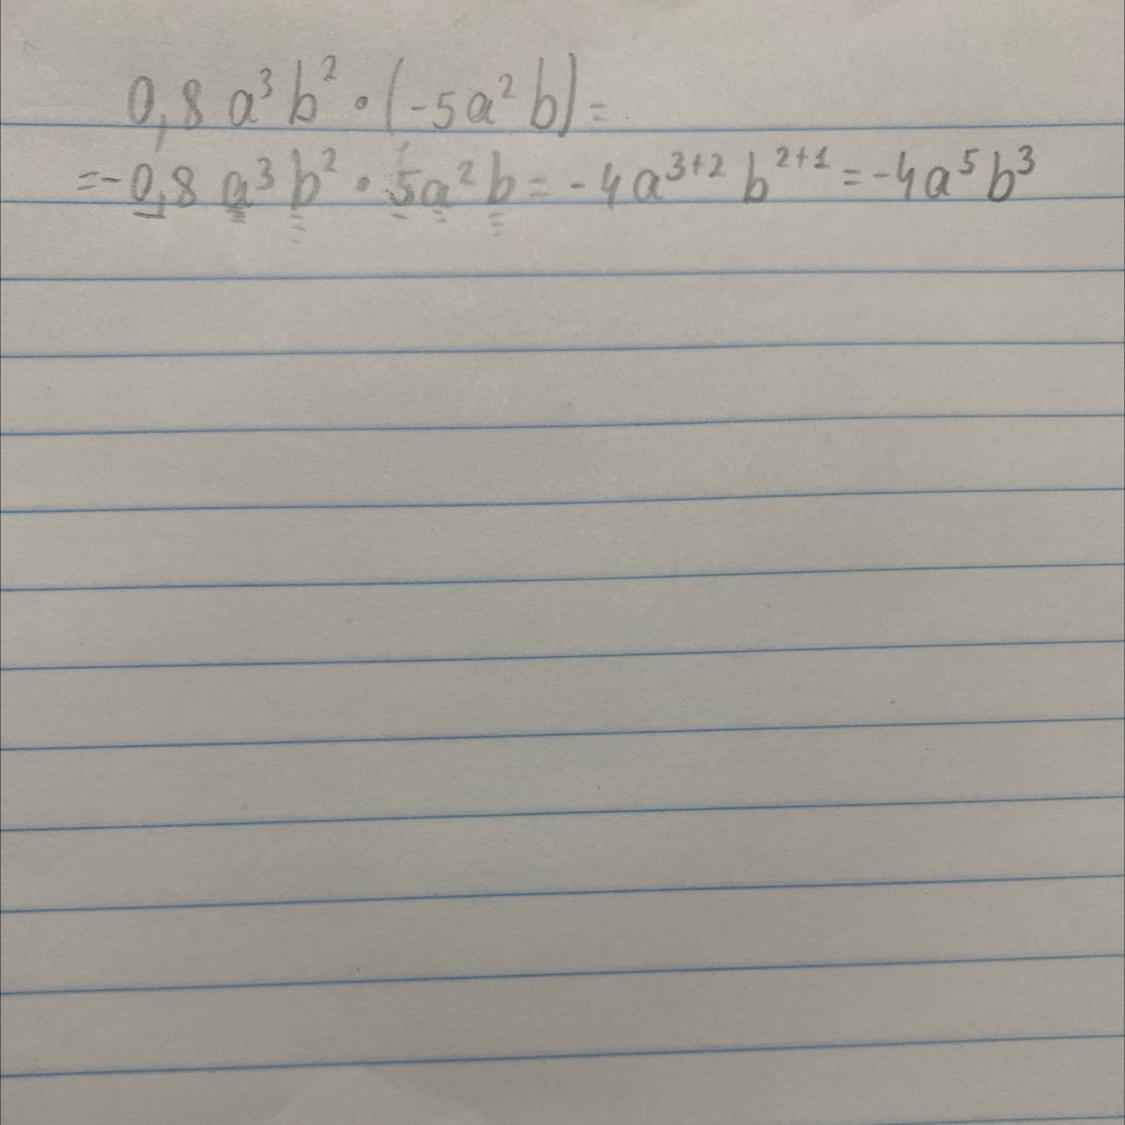 0,8 a³ b² • (-5a² b) =
= - 0,8 a³ b² • 5a² b = - 4a³⁺² b²⁺¹ = -4a⁵ b³